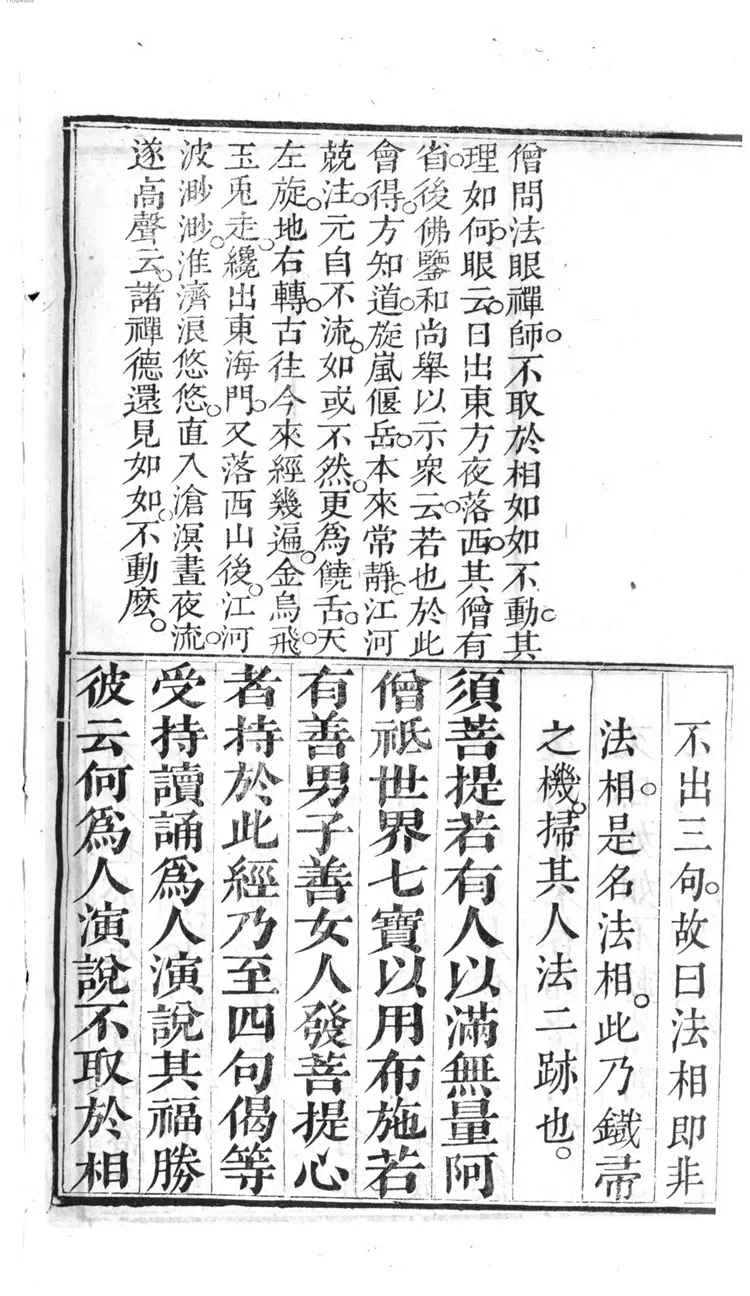 僧問法眼禪師。不取於相如如不動。其
理如何。眼云。日出東方夜落西。其僧有
省。後佛鑒和尚舉以示衆云。若也於此
會得。方知道。旋嵐偃岳。本來常靜。江河
兢注。元自不流。如或不然。更爲饒舌。天
左旋。地右轉。古往今來經幾遍。金烏飛。
玉兎走。纔出東海門。又落西山後。江河
波渺渺。淮濟浪悠悠。直入滄溟晝夜流。
遂高聲云。諸禪德還見如如。不動麽。
不出三句。故曰法相即非
法相。是名法相。此乃鐵帚
之機。掃其人法二跡也。
須菩提若有人以滿無量阿
僧祇世界七寶以用布施若
有善男子善女人發菩提心
者持於此經乃至四句偈等
受持讀誦爲人演說其福勝
彼云何爲人演說不取於相